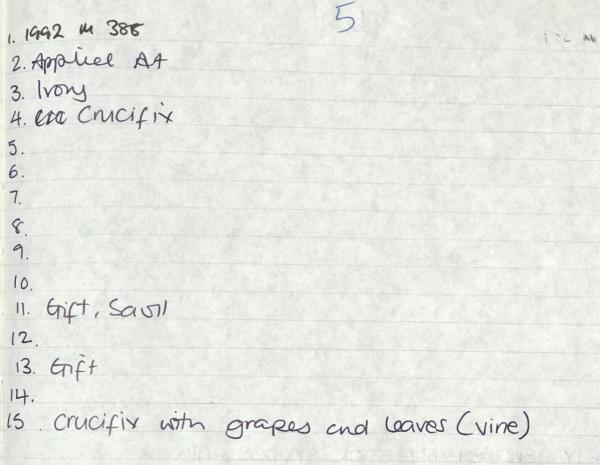 5
1. 1992 M 386
2. Applied Art
3. Ivory
4. Crucifix
5.
6.
7.
8.
9.
10.
11. Gift, Savill
12.
13. Gift
14.
15. Crucifix with grapes and leaves (vine)